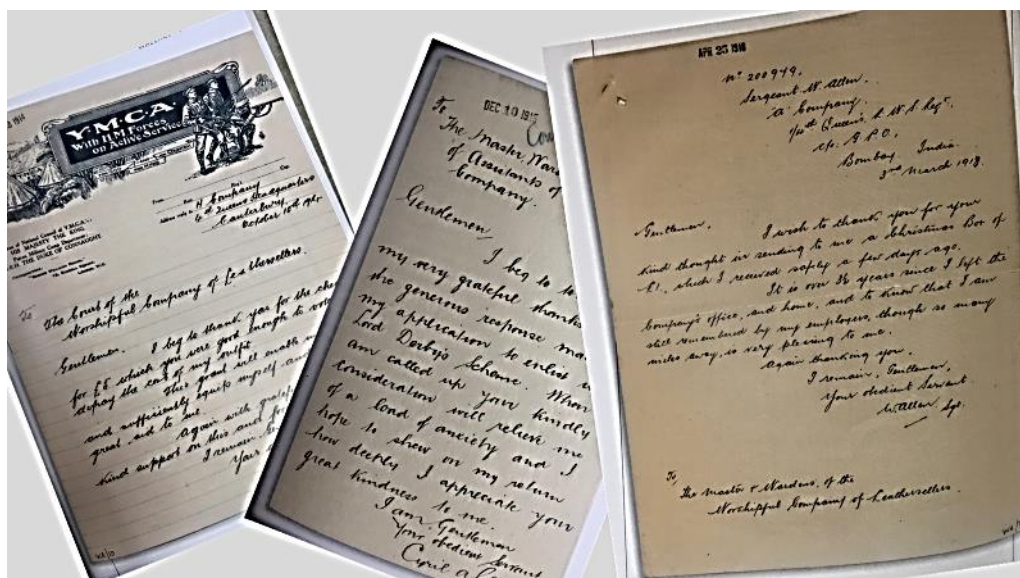 1914
Y.M.C.A.
With H.M. Forces
on Active Service
National Council of Y.M.C.A.:
HIS MAJESTY THE KING
Military Camp Department:
THE DUKE OF CONNAUGHT
H Company
Queens Headquarters
Canterbury
October 18th
To
The Court of the
Worshipful Company of Leathersellers.
Gentlemen. I beg to thank you for the
for £5 which you were good enough to
defray the cost of my outfit.
This grant will enable
and sufficiently equip myself and
great aid to me.
Again with
kind support on this and
I remain
Your
DEC 10 191
To
The Master,
of Assistants of
Company.
Gentlemen,
I beg to
my very grateful thanks
the generous response
my application to enlist
Lord Derby's Scheme. When
am called up your kindly
consideration will relieve me
of a load of anxiety and I
hope to shew on my return
how deeply I appreciate your
great kindness to me.
I am, Gentlemen
Your obedient Servant
Cyril
APR 25 1918
No 200979.
Sergeant W. Allen.
'A' Company.
Queen's R. W. S. Regt.
c/o. G.P.O.
Bombay. India.
3rd March 1918.
Gentlemen. I wish to thank you for your
kind thought in sending to me a Christmas Box of
£1, which I received safely a few days ago.
It is over 3½ years since I left the
Company's office, and home, and to know that I am
still remembered by my employers, though so many
miles away, is very pleasing to me.
Again thanking you.
I remain, Gentlemen,
Your obedient Servant.
W. Allen Sgt.
To,
The Master & Wardens, of the
Worshipful Company of Leathersellers.